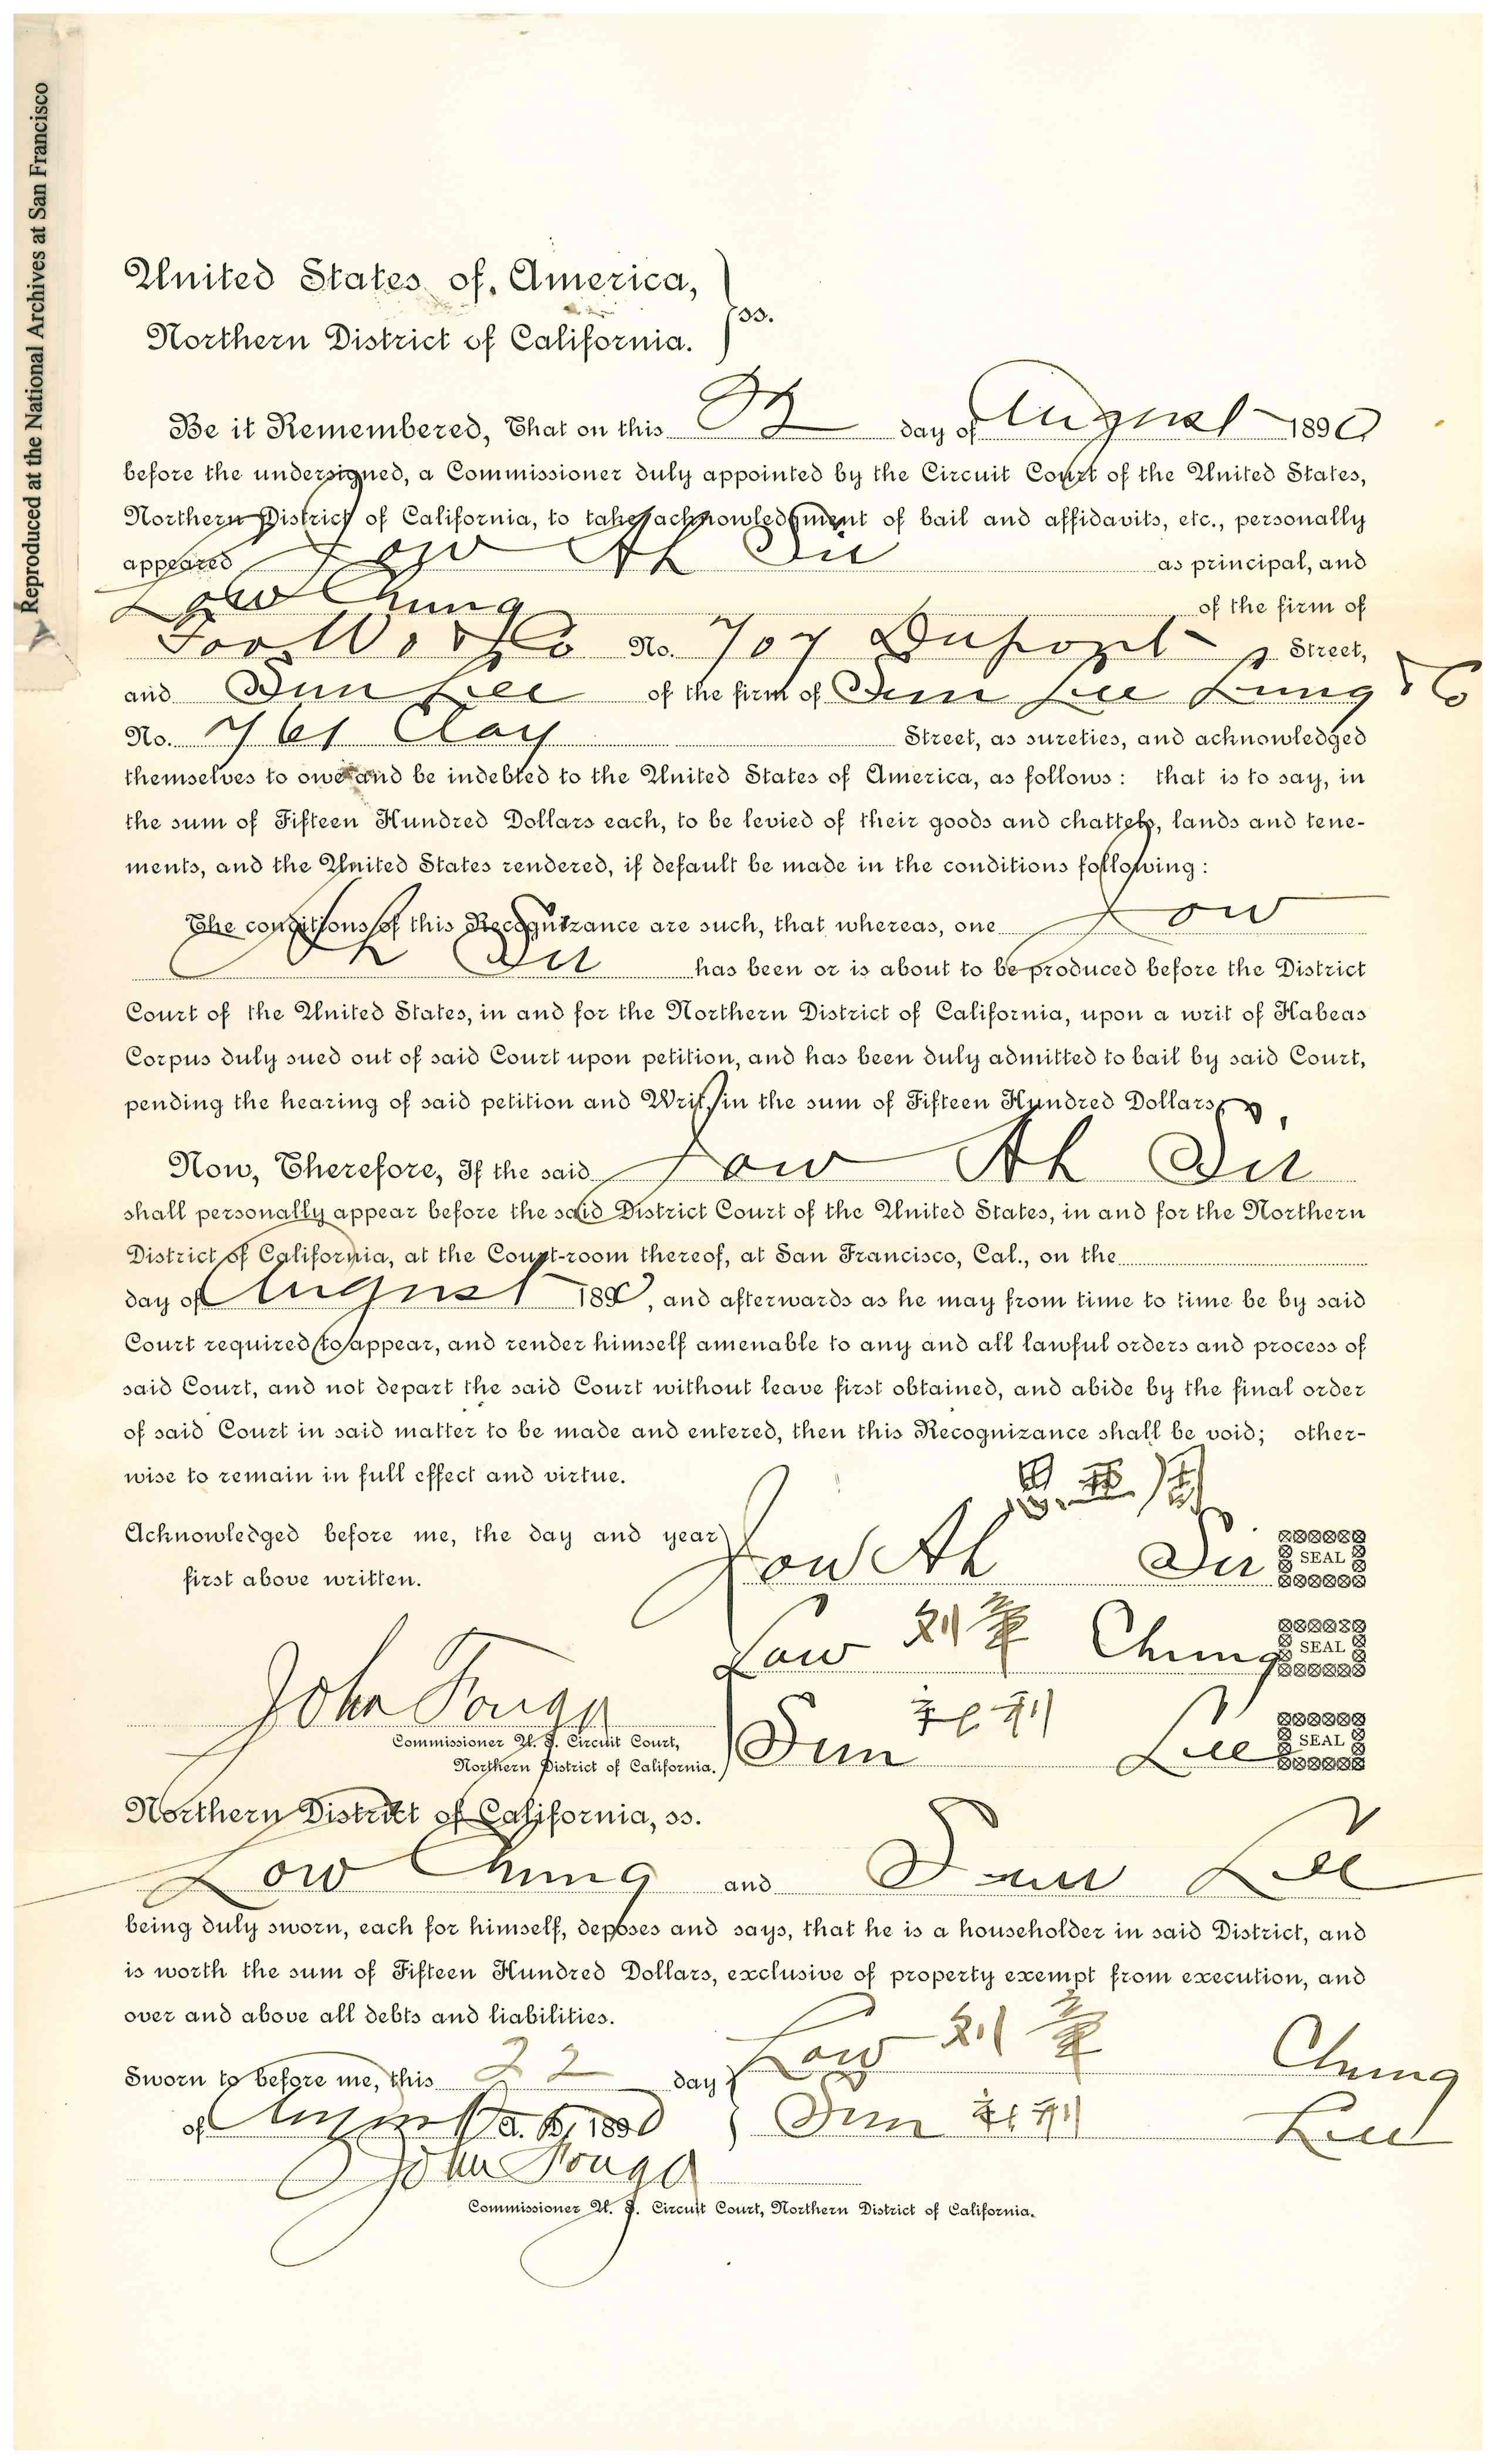 Reproduced at the National Archives at San Francisco
United States of America,
Northern District of California. } ss.
Be it Remembered, That on this 22 day of August 1890
before the undersigned, a Commissioner duly appointed by the Circuit Court of the United States,
Northern District of California, to take acknowledgment of bail and affidavits, etc., personally
appeared Jow Ah Sir as principal, and
Low Chung of the firm of
Foo Wo & Co No. 707 Dupont Street,
and Sun Lee of the firm of Sun Lee Lung & Co
No. 761 Clay Street, as sureties, and acknowledged
themselves to owe and be indebted to the United States of America, as follows: that is to say, in
the sum of Fifteen Hundred Dollars each, to be levied of their goods and chattels, lands and tene-
ments, and the United States rendered, if default be made in the conditions following:
The conditions of this Recognizance are such, that whereas, one Jow
Ah Sir has been or is about to be produced before the District
Court of the United States, in and for the Northern District of California, upon a writ of Habeas
Corpus duly sued out of said Court upon petition, and has been duly admitted to bail by said Court,
pending the hearing of said petition and Writ, in the sum of Fifteen Hundred Dollars.
Now, Therefore, If the said Jow Ah Sir
shall personally appear before the said District Court of the United States, in and for the Northern
District of California, at the Court-room thereof, at San Francisco, Cal., on the
day of August 1890, and afterwards as he may from time to time be by said
Court required to appear, and render himself amenable to any and all lawful orders and process of
said Court, and not depart the said Court without leave first obtained, and abide by the final order
of said Court in said matter to be made and entered, then this Recognizance shall be void; other-
wise to remain in full effect and virtue.
恩亜周
Acknowledged before me, the day and year
first above written.
Jow Ah Sir SEAL
Low 刘章 Chung SEAL
John Fouga
Commissioner U. S. Circuit Court,
Northern District of California.
Sun Lee SEAL
Northern District of California, ss.
Low Chung and Sun Lee
being duly sworn, each for himself, deposes and says, that he is a householder in said District, and
is worth the sum of Fifteen Hundred Dollars, exclusive of property exempt from execution, and
over and above all debts and liabilities.
Sworn to before me, this 22 day
of August A. D. 1890
Low 刘章 Chung
Sun Lee
John Fouga
Commissioner U. S. Circuit Court, Northern District of California.